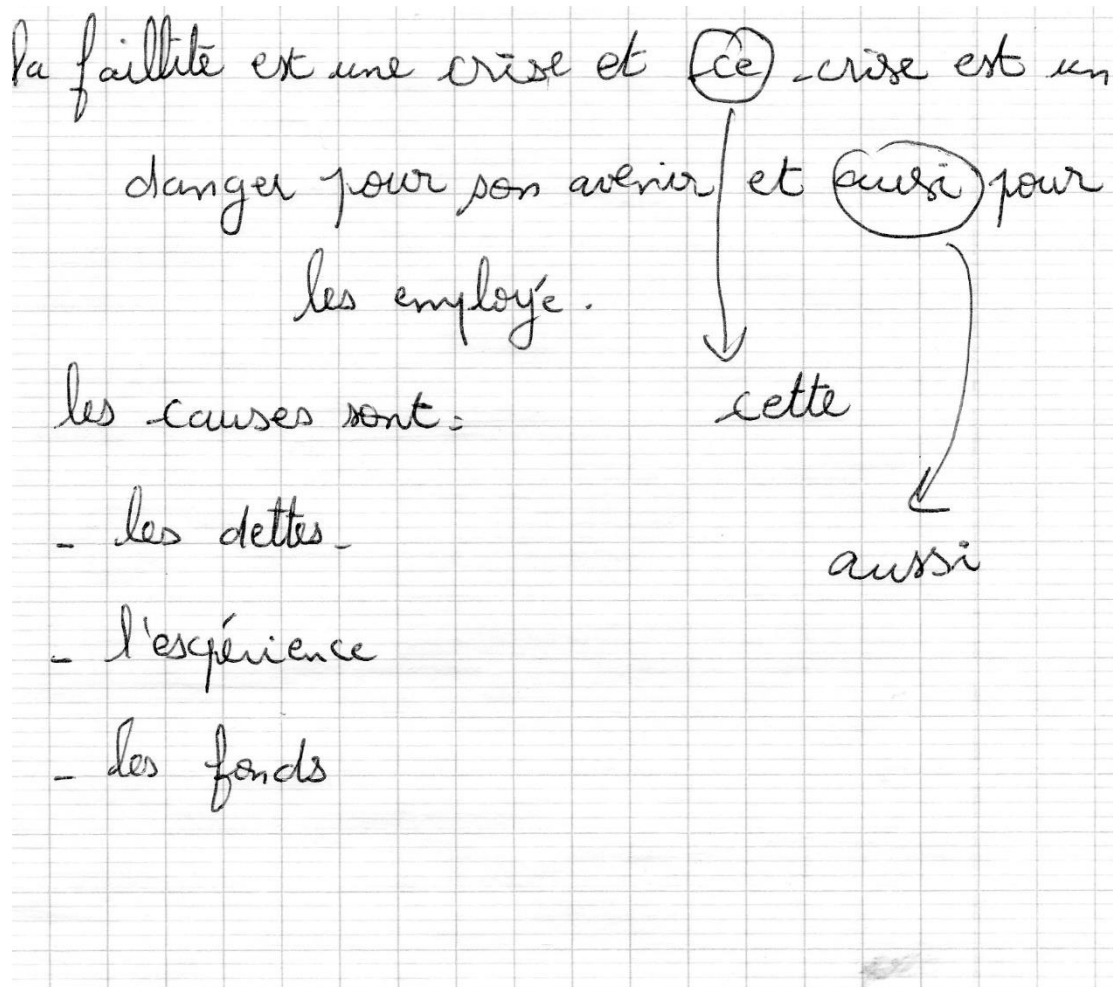 la faillite est une crise et ce crise est un
danger pour son avenir et ausi pour
les employé.
les causes sont :
cette
- les dettes
aussi
- l'expérience
- les fonds